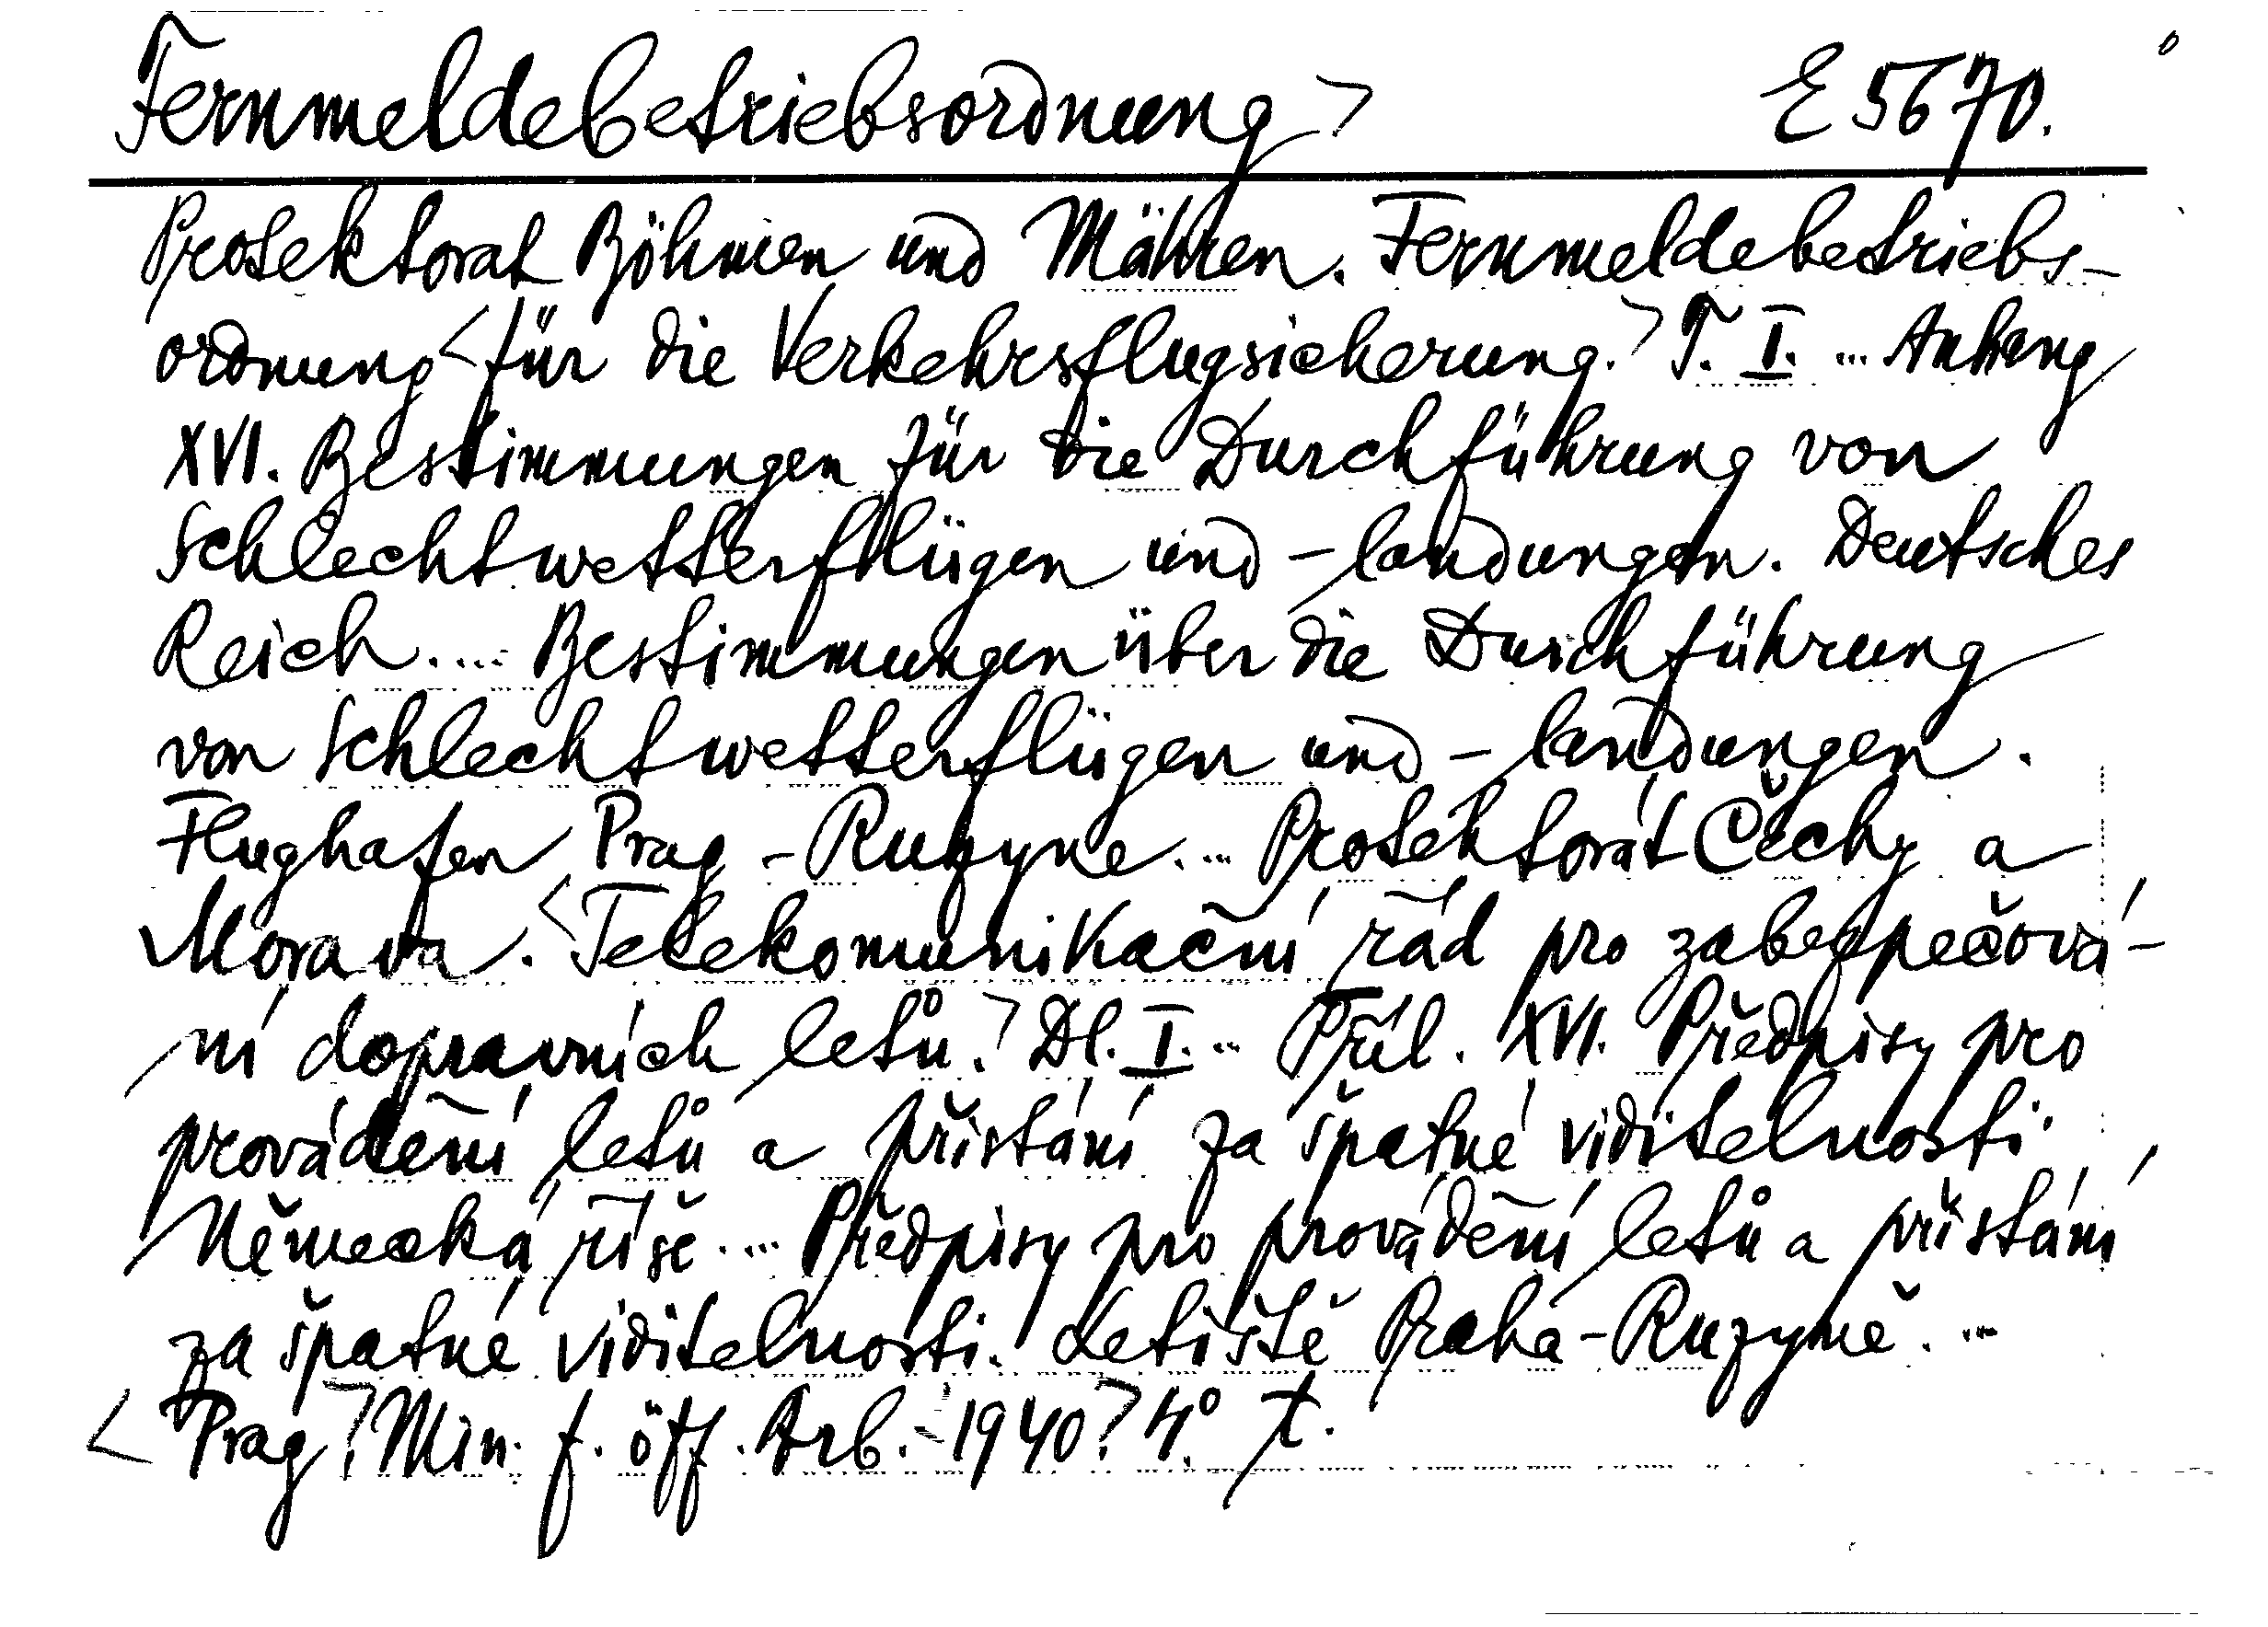 Fernmeldebetriebsordnung> E 5670.
Protektorat Böhmen und Mähren. Fernmeldebetriebs-
ordnung <für die Verkehrsflugsicherung.> T. I. ... Anhang
XVI. Bestimmungen für die Durchführung von
Schlechtwetterflügen und -landungen. Deutsches
Reich. ... Bestimmungen über die Durchführung
von Schlechtwetterflügen und -landungen.
Flughafen Prag-Ruzyne. ... Protektorát Čechy a
Morava. <Telekomunikační řád pro zabezpečová-
ní dopravních letů.> Dl. I. ... Příl. XVI. Předpisy pro
provádění letů a přistání za špatné viditelnosti.
Německá říše. ... Předpisy pro provádění letů a přistání
za špatné viditelnosti. Letiště Praha-Ruzyně. ...
<Prag>: Min. f. öff. Arb. <1940>. 4°.